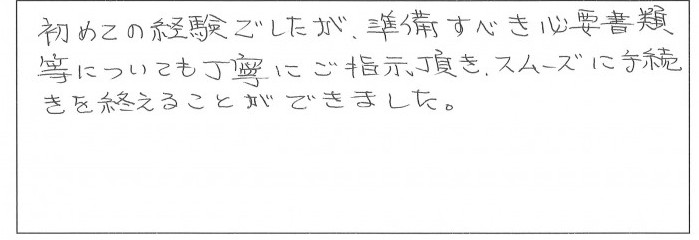 初めての経験でしたが、準備すべき必要書類
等についても丁寧にご指示頂き、スムーズに手続
きを終えることができました。